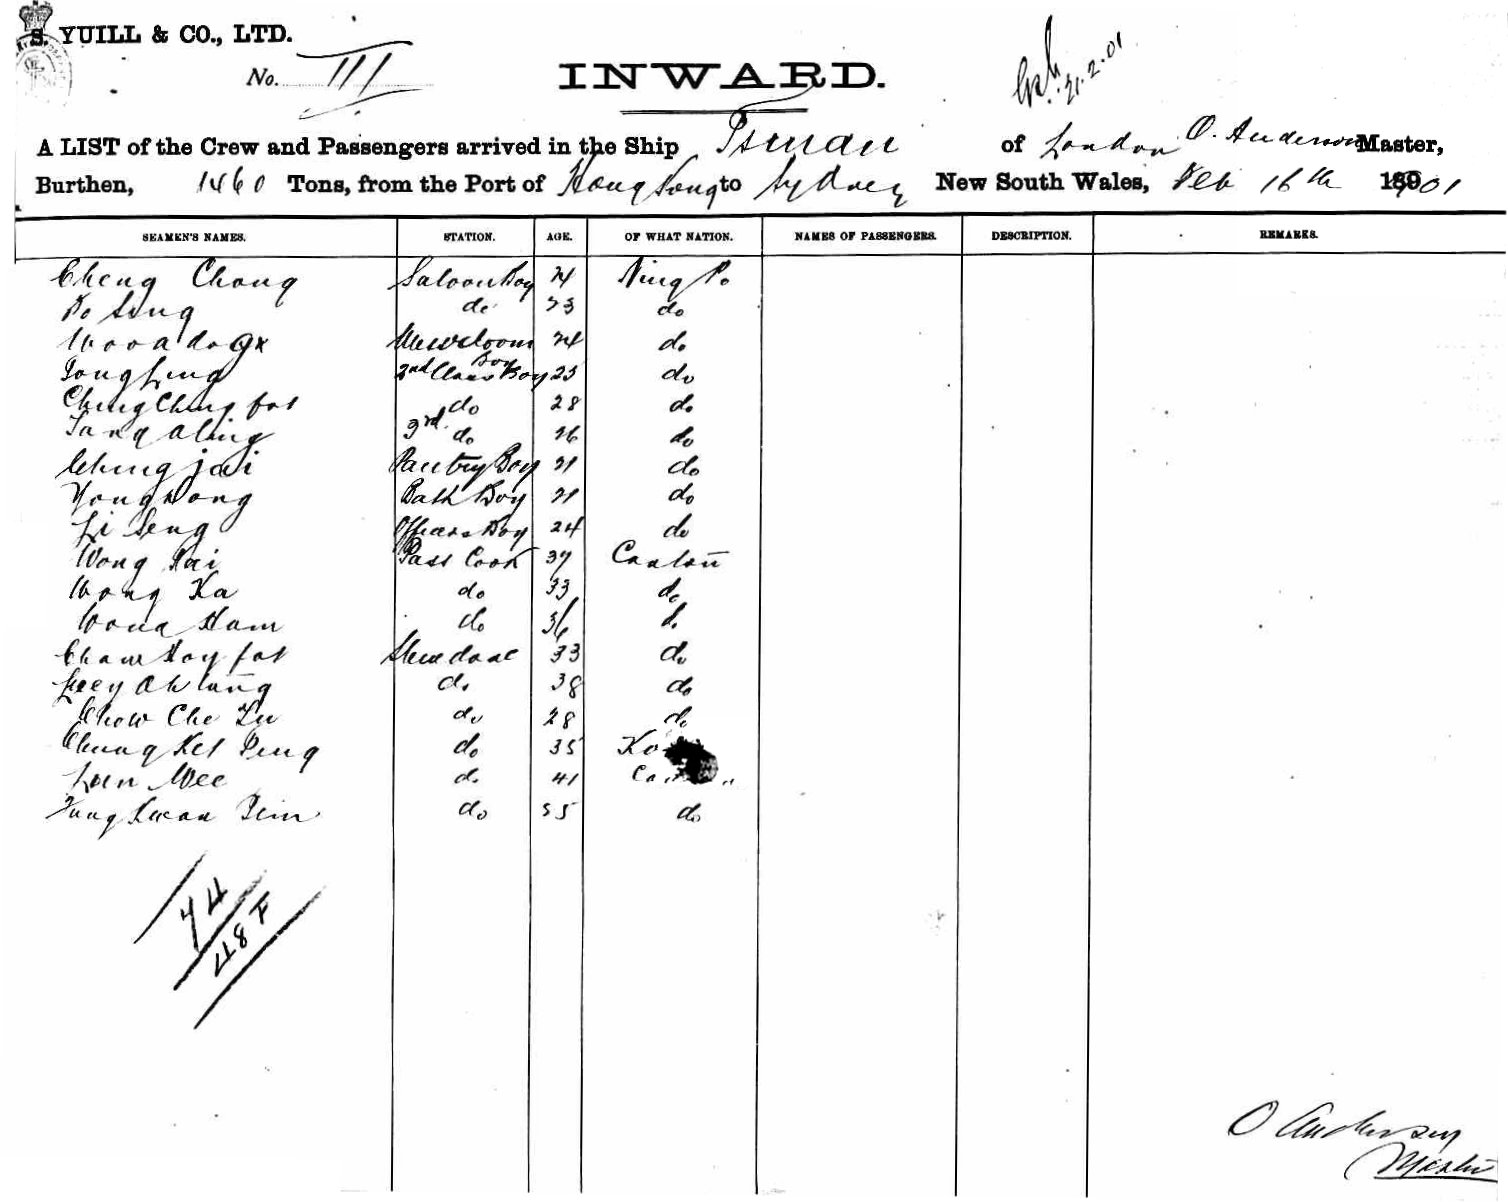 S. YUILL & CO., LTD.
No. III
INWARD.
21.2.01
A LIST of the Crew and Passengers arrived in the Ship Tsinan of London O. Anderson Master,
Burthen, 1460 Tons, from the Port of Hong Kong to Sydney New South Wales, Feb 16th 1901
SEAMEN'S NAMES. STATION. AGE. OF WHAT NATION. NAMES OF PASSENGERS. DESCRIPTION. REMARKS.
Cheng Chong Saloon Boy 24 Ning Po
Do Sing do 23 do
24 do
2nd Class Boy 25 do
Ching Ching fat do 28 do
Tang Aling 3rd do 26 do
Ching jai Pantry Boy 21 do
Yong Wong Bath Boy 21 do
Li Seng Officers Boy 24 do
Wong Kai Pass Cook 37 Canton
Wong Ka do 33 do
Wong Ham do 36 do
Cham Hoy fat Stewdore 33 do
Leey Ah lung do 38 do
Chow Che Lu do 28 do
Chung Ket Peng do 35
Lum Wee do 41
Fung Kwan Pim do 55 do
74
48 F
O Anderson
Master